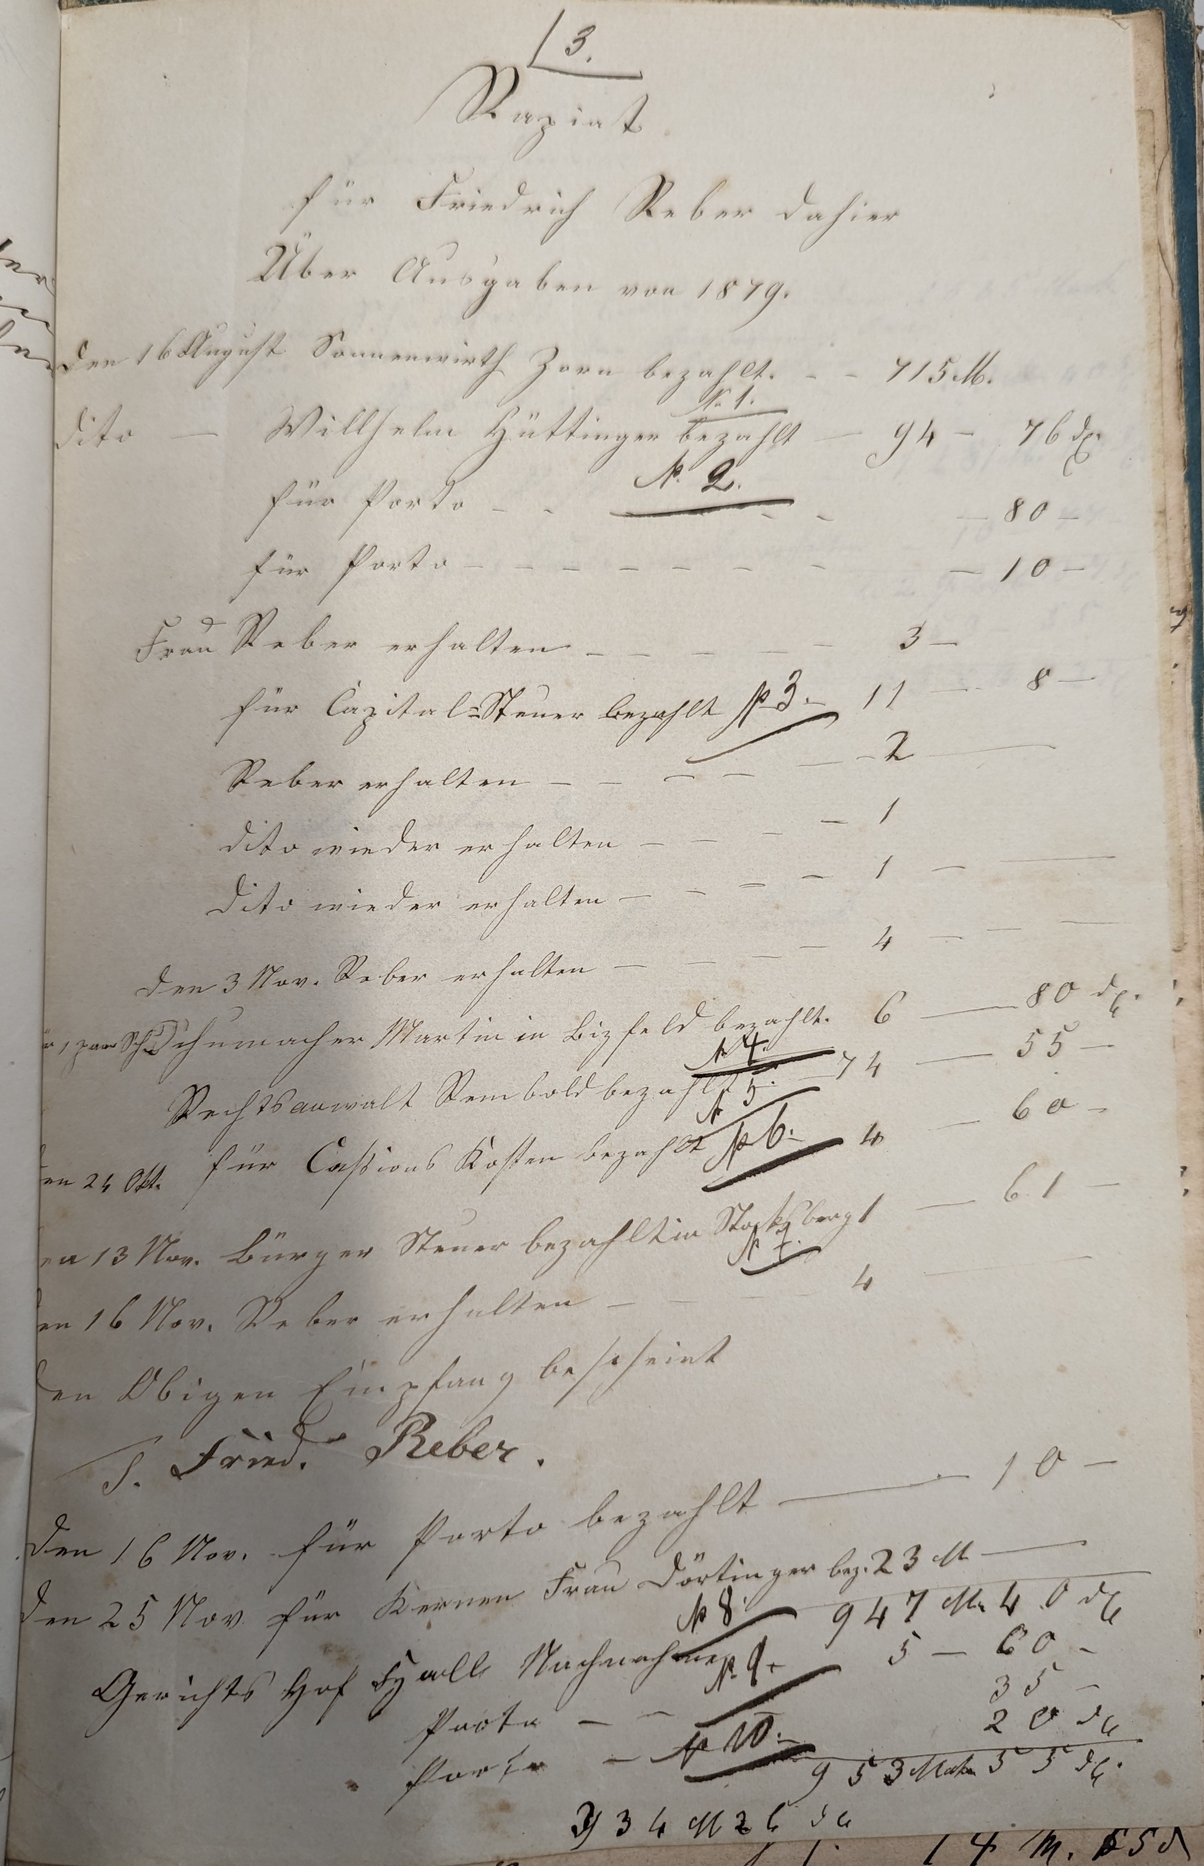 3.
Rapiat
für Friedrich Reber dahier
Über Ausgaben von 1879.
Den 16 August Sonnenwirth Zorn bezahlt. - - 715 M.
N. 1.
dito — Willhelm Hüttinger bezahlt — 94 — 76 d.
N. 2.
für Porto - - - - — 80 —
für Porto - - - - - - - — 10 —
Frau Reber erhalten - - - - - 3 —
für Capital=Steuer bezahlt N 3. 11 — 8 —
Reber erhalten - - - - - 2 —
dito wieder erhalten - - - - 1
dito wieder erhalten - - - - 1 —
den 3 Nov. Reber erhalten - - - - 4 - - -
1 par Sch Schumacher Martin in Bizfeld bezahlt. 6 — 80 d.
N 4.
Rechtsanwalt Rembold bezahlt 74 — 55 —
N 5.
en 24 Okt. für Casions Kosten bezahlt N 6. 4 — 60 —
en 13 Nov. Bürger Steuer bezahlt in Stocksberg 1 — 61 —
N 7.
en 16 Nov. Reber erhalten - - - - 4 —
den Obigen Empfang bescheint
T. Fried. Reber.
Den 16 Nov. für Porto bezahlt — 10 —
den 25 Nov für Kernen Frau Dörtinger bez. 23 M —
N 8. 947 M 40 d
Gerichts Hof Nachnahme N. 9. 5 — 60 —
Porto - - 35 —
Porto - N 10. 20 d
953 Mark 55 d.
934 M 26 d
14 M. 55 d